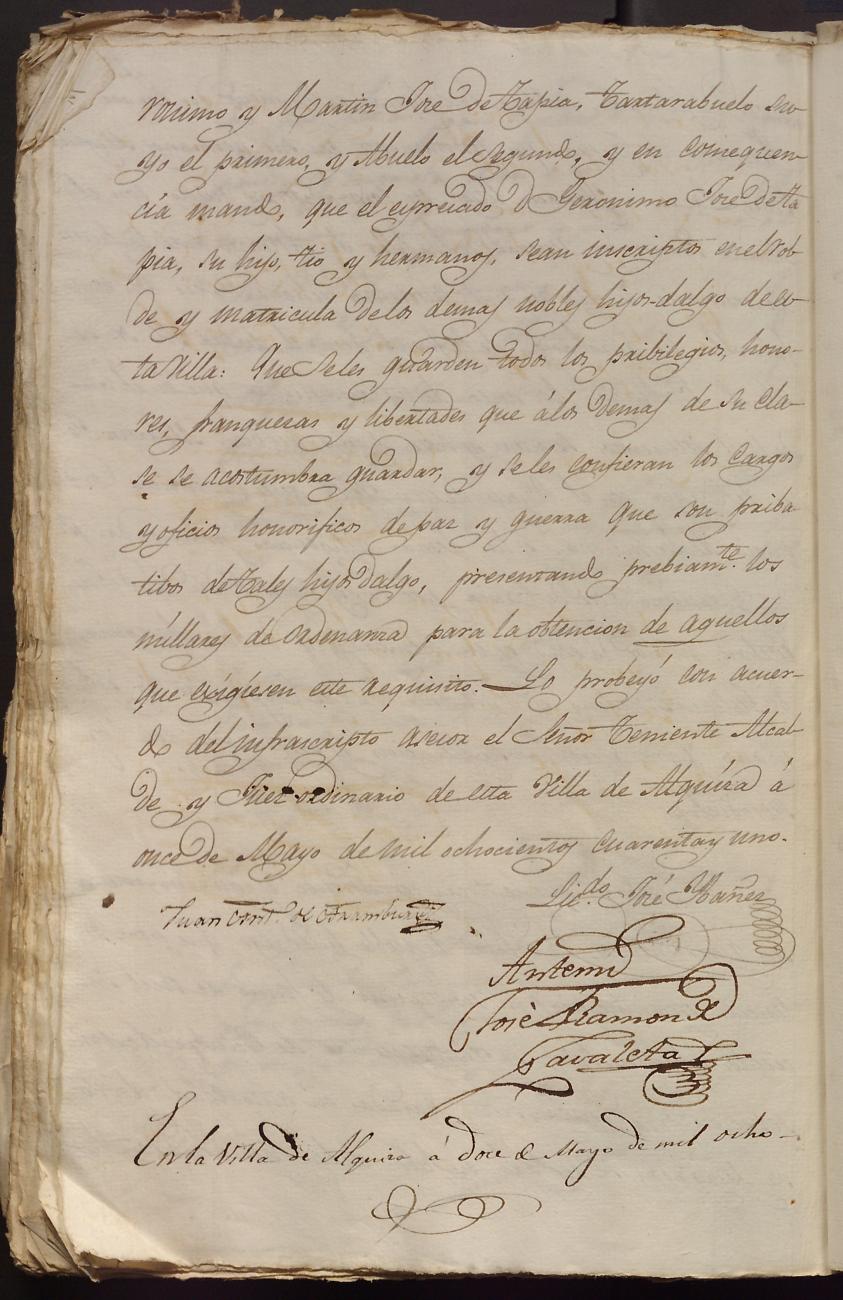 ronimo y Martin José de Tapia, tartarabuelo su-
yo el primero, y Abuelo el segundo, y en consequen-
cia mando, que el expresado Dn Geronimo José de Ta
pia, su hijo, tio y hermanos, sean inscriptos en el rol-
de y matricula de los demas nobles hijos-dalgo de es-
ta Villa: Que se les guarden todos los pribilegios, hono-
res, franquesas y libertades que á los demas de su cla-
se se acostumbra guardar, y se les confieran los cargos
y oficios honorificos de paz y guerra que son priba
tibos de tales hijosdalgo, presentando prebiamte. los
millares de ordenanza para la obtencion de aquellos
que exigiesen este requisito. Lo probeyó con acuer-
do del infrascripto asesor el Señor Teniente Alcal-
de y Juez ordinario de esta Villa de Alquiza á
once de Mayo de mil ochocientos cuarenta y uno.
Licdo. José Ybañez
Juan de Aramburu
Antemi
José Ramon de
Zavaleta
En la Villa de Alquiza á doce de Mayo de mil ocho-